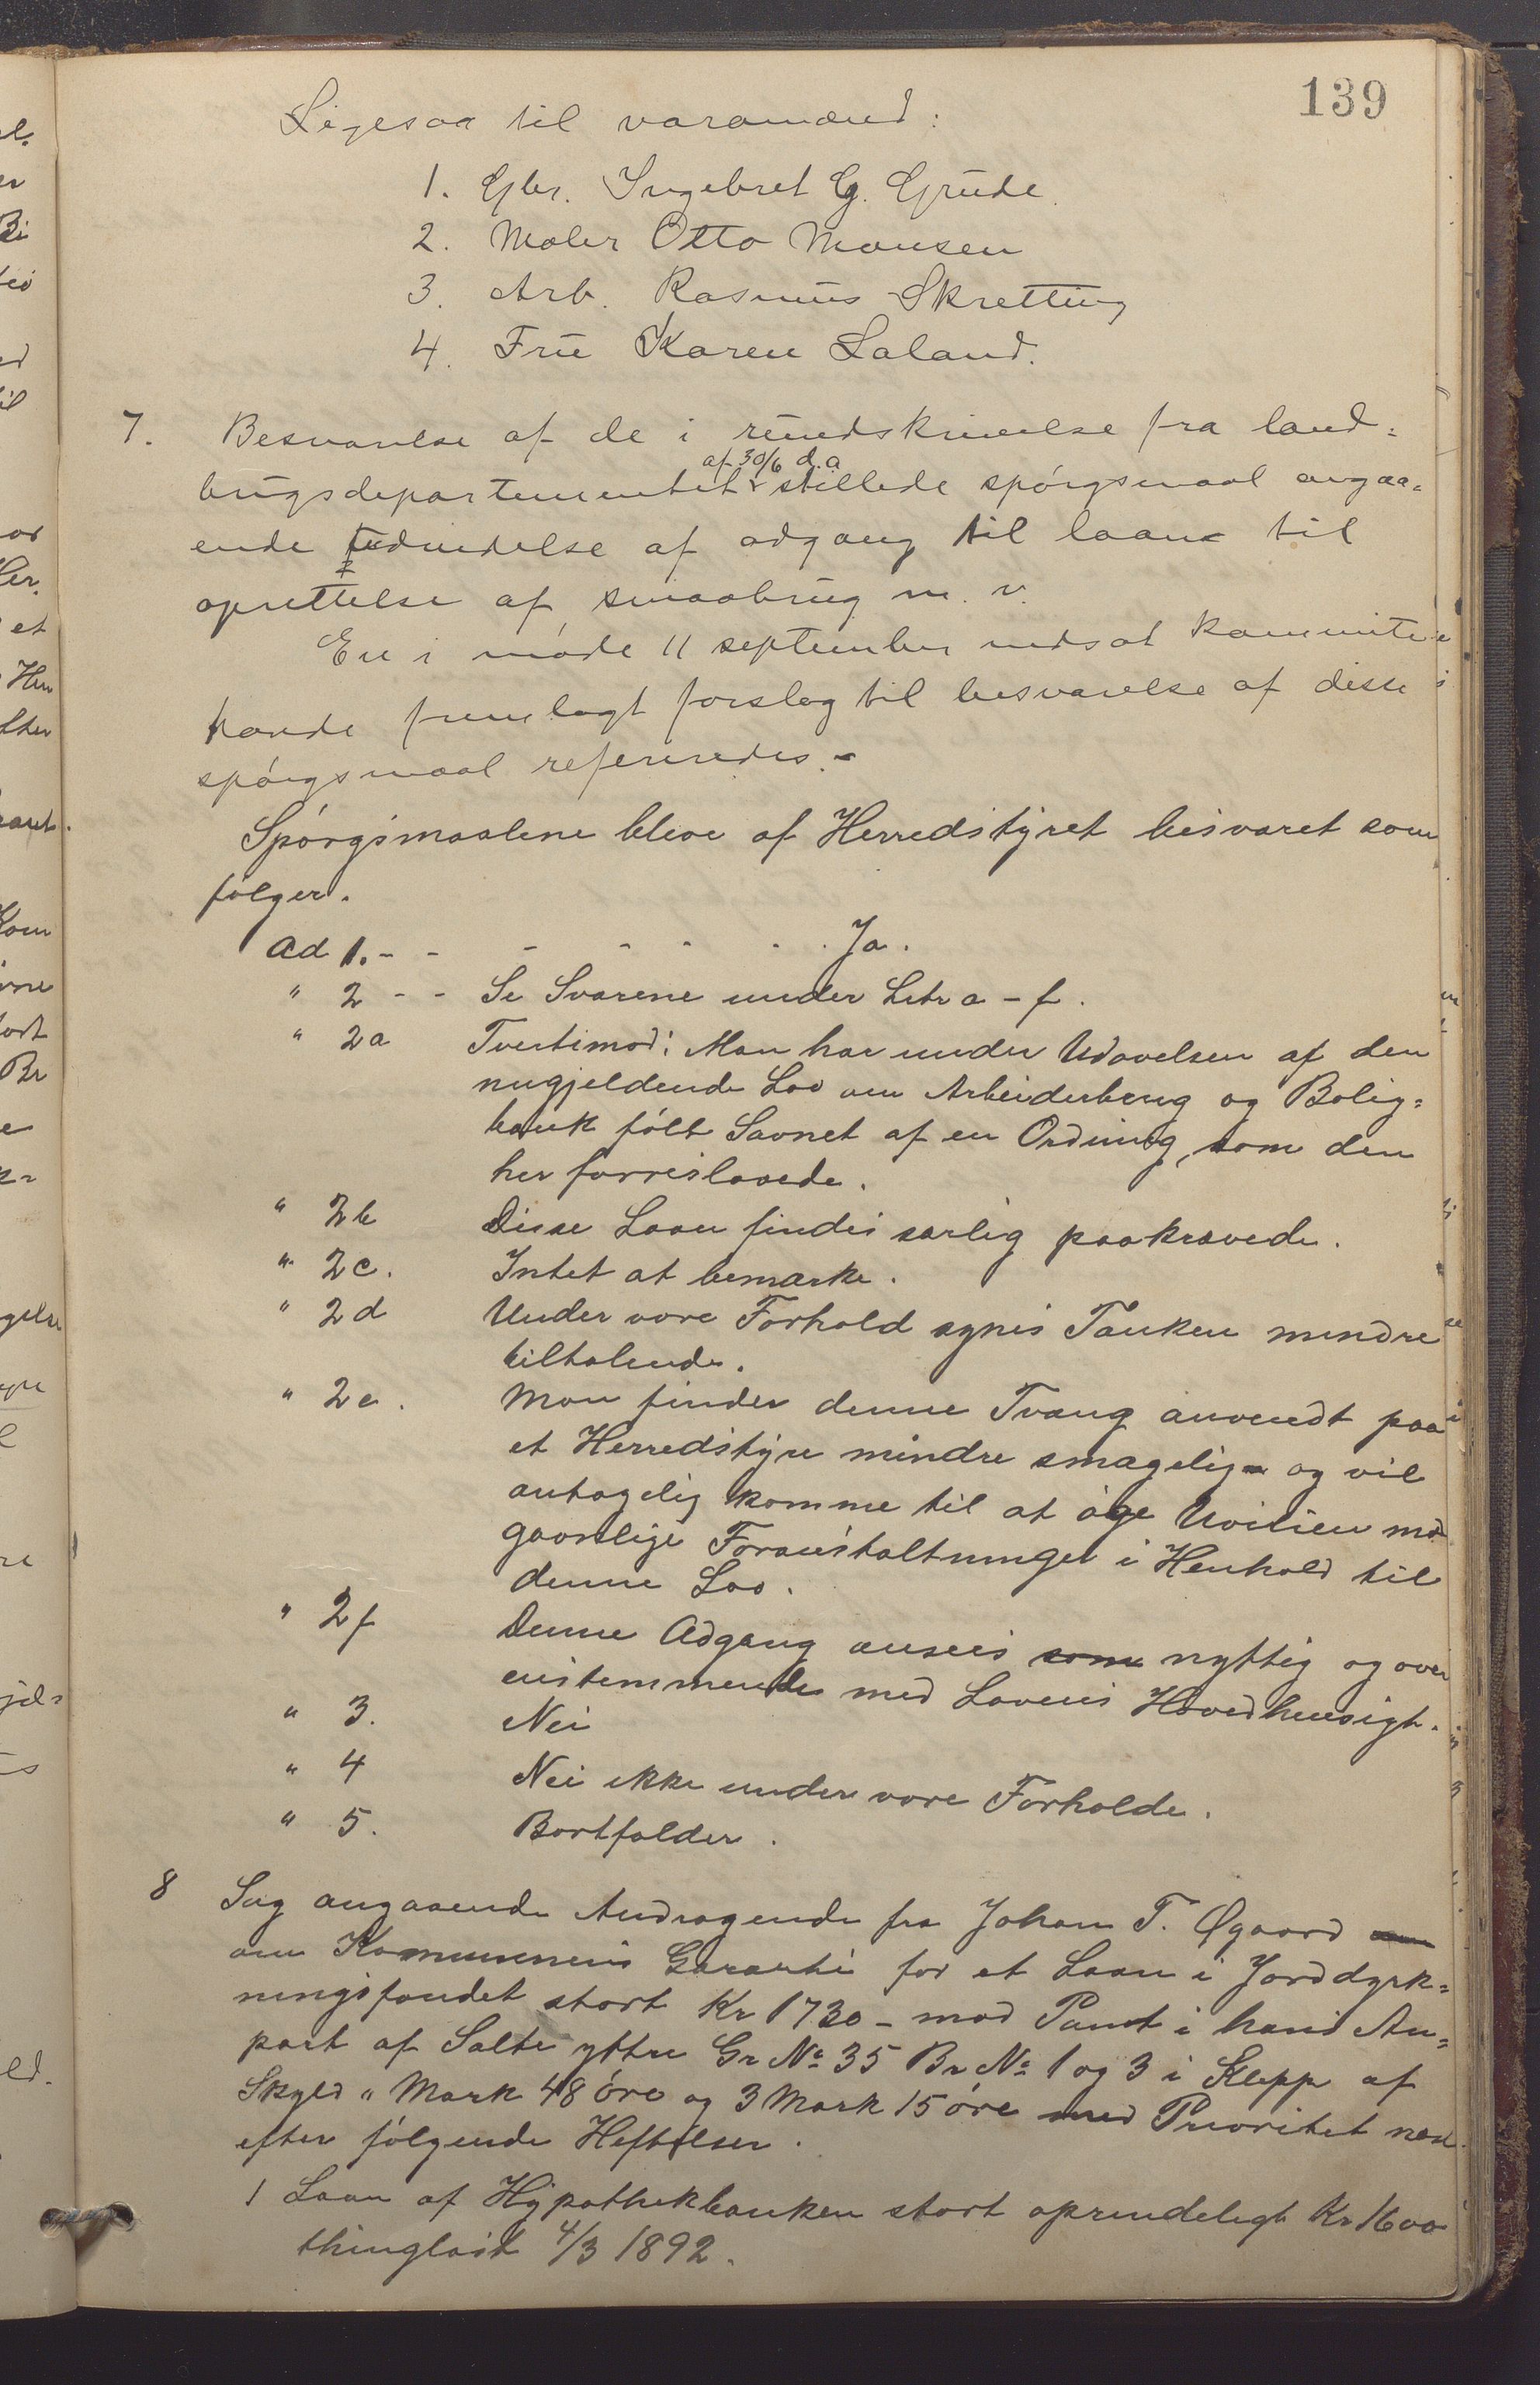 139
Ligesaa til varamænd:
1. Gbr. Ingebret G. Grude.
2. Maler Otto Monsen
3. Arb. Rasmus Skretting
4. Frue Karen Laland.
7. Besvarelse af de i rundskrivelse fra land=
brugsdepartementet af 30/6 d.a. stillede spórgsmaal angaa=
ende udvidelse af adgang til laan til
oprettelse af smaabrug m. v.
En i móde 11 september nedsat kommite
havde fremlagt forslag til besvarelse af disse
spórgsmaal refereredes.-
Spórgsmaalene bleve af Herredstyret besvaret som
fólger.
Ad 1. - - - - - - - Ja.
" 2 - - Se Svarene under Litr a - f.
" 2a Tvertimod: Man har under Udøvelsen af den
nugjeldende Lov om Arbeiderbrug og Bolig=
bank fólt Savnet af en Ordning, som den
her forreslaaede.
" 2b Disse Laan findes særlig paakrævede.
" 2c. Intet at bemærke.
" 2d Under vore Forhold synes Tanken mindre
tiltalende.
" 2e. Man finder denne Tvang anvendt paa
et Herredstyre mindre smagelig og vil
antagelig komme til at óge Uvilien mod
gavnlige Foranstaltninger i Henhold til
denne Lov.
" 2f Denne Adgang ansees som nyttig og over
ensstemmende med Lovens Hovedhensigt.
" 3. Nei
" 4 Nei ikke under vore Forholde.
" 5. Bortfalder.
8 Sag angaaende Andragende fra Johan T. Øgaard
om Kommunens Garanti for et Laan i Jorddyrk=
ningsfondet stort Kr 1730 - mod Pant i hans An=
part af Salte yttre Gr No 35 Br No 1 og 3 i Klepp af
Skyld " Mark 48 óre og 3 Mark 15 óre med Prioritet næst
efter fólgende Heftelser.
1 Laan af Hypothekbanken stort oprindeligt Kr 1600
thinglæst 4/3 1892.